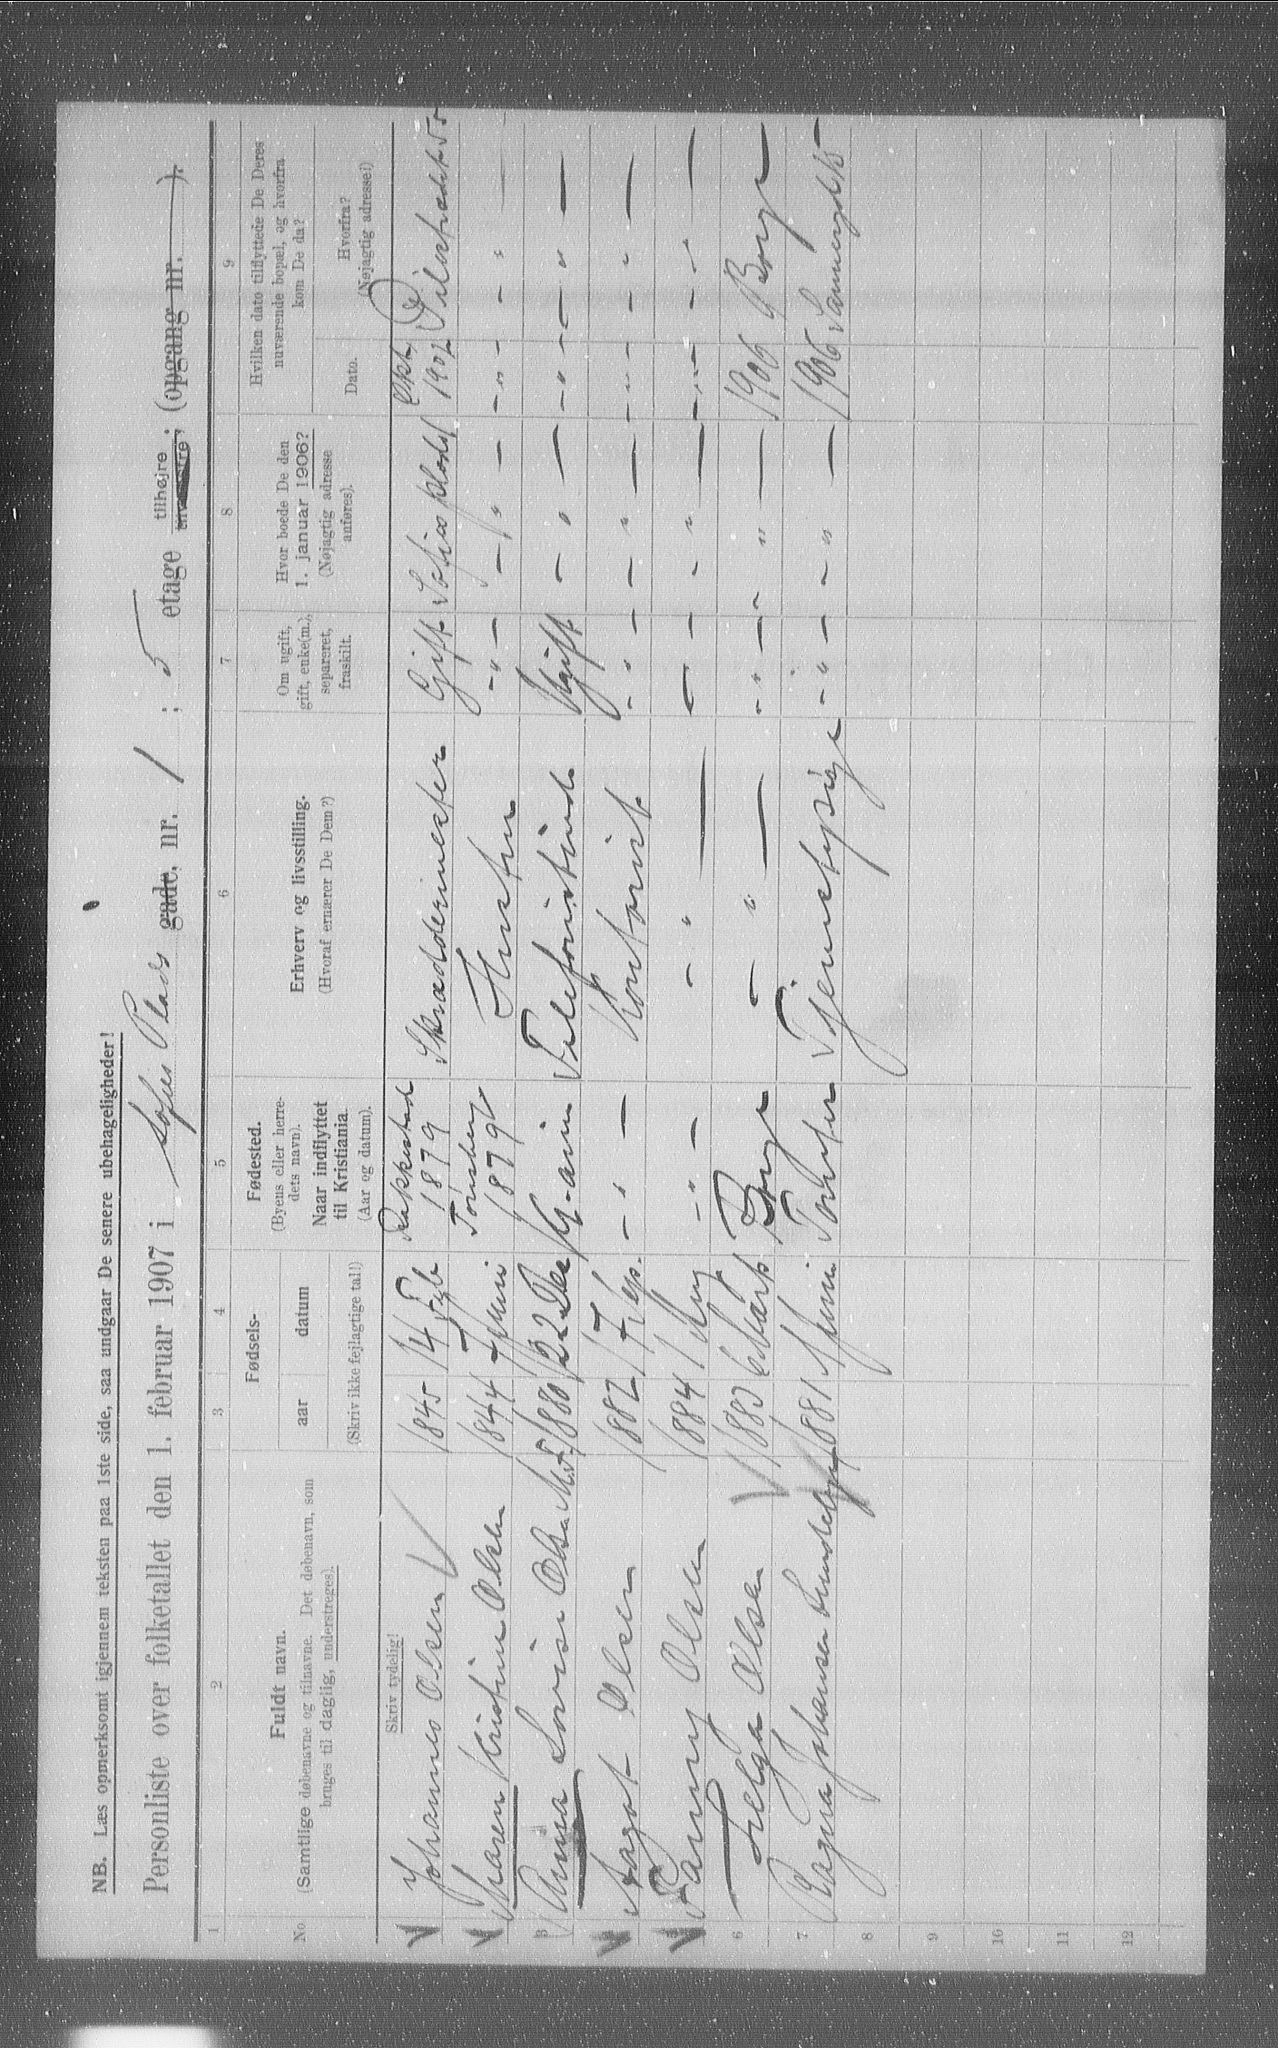 NB. Læs opmerksomt igjennem teksten paa 1ste side, saa undgaar De senere ubehageligheder!
Personliste over folketallet den 1. februar 1907 i Sofies Plads gade, nr. 1 ; 5 etage tilhøjre ; (opgang nr. ).
1 2 3 4 5 6 7 8 9
No
Fuldt navn.
(Samtlige døbenavne og tilnavne. Det døbenavn, som
bruges til daglig, understreges).
Skriv tydelig!
Fødsels-
aar datum
(Skriv ikke fejlagtige tal!)
Fødested.
(Byens eller herre-
dets navn).
Naar indflyttet
til Kristiania
(Aar og datum).
Erhverv og livsstilling.
(Hvoraf ernærer De Dem?)
Om ugift,
gift, enke(m.),
separeret,
fraskilt.
Hvor boede De den
1. januar 1906?
(Nøjagtig adresse
anføres).
Hvilken dato tilflyttede De Deres
nuværende bopæl, og hvorfra
kom De da?
Dato.
Hvorfra?
(Nøjagtig adresse!)
Johannes Olsen 1845 14 Feb Rakkestad 1879 Skræddermester Gift Sofies Plads 1 Okt 1902 Pilestrædet
Maren Kristine Olsen 1844 7 Juni Tønsberg 1879 Hustru - " - - " - - " - - " -
3 Anna Lovise Olsen 1880 22 Dec Kr.ania Telefonistinde Ugift - " - - " - - " -
Aagot Olsen 1882 7 Sep. - " - Kontorist - " - - " - - " - - " -
Fanny Olsen 1884 1 Aug - " - - " - - - " - - " - - " -
6 Helga Olsen 1883 6 Marts Borge - " - - " - - " - 1906 Borge
7 Ragna Johansen 1881 1 Juni Tjenestepige - " - - " - 1906
8
9
10
11
12